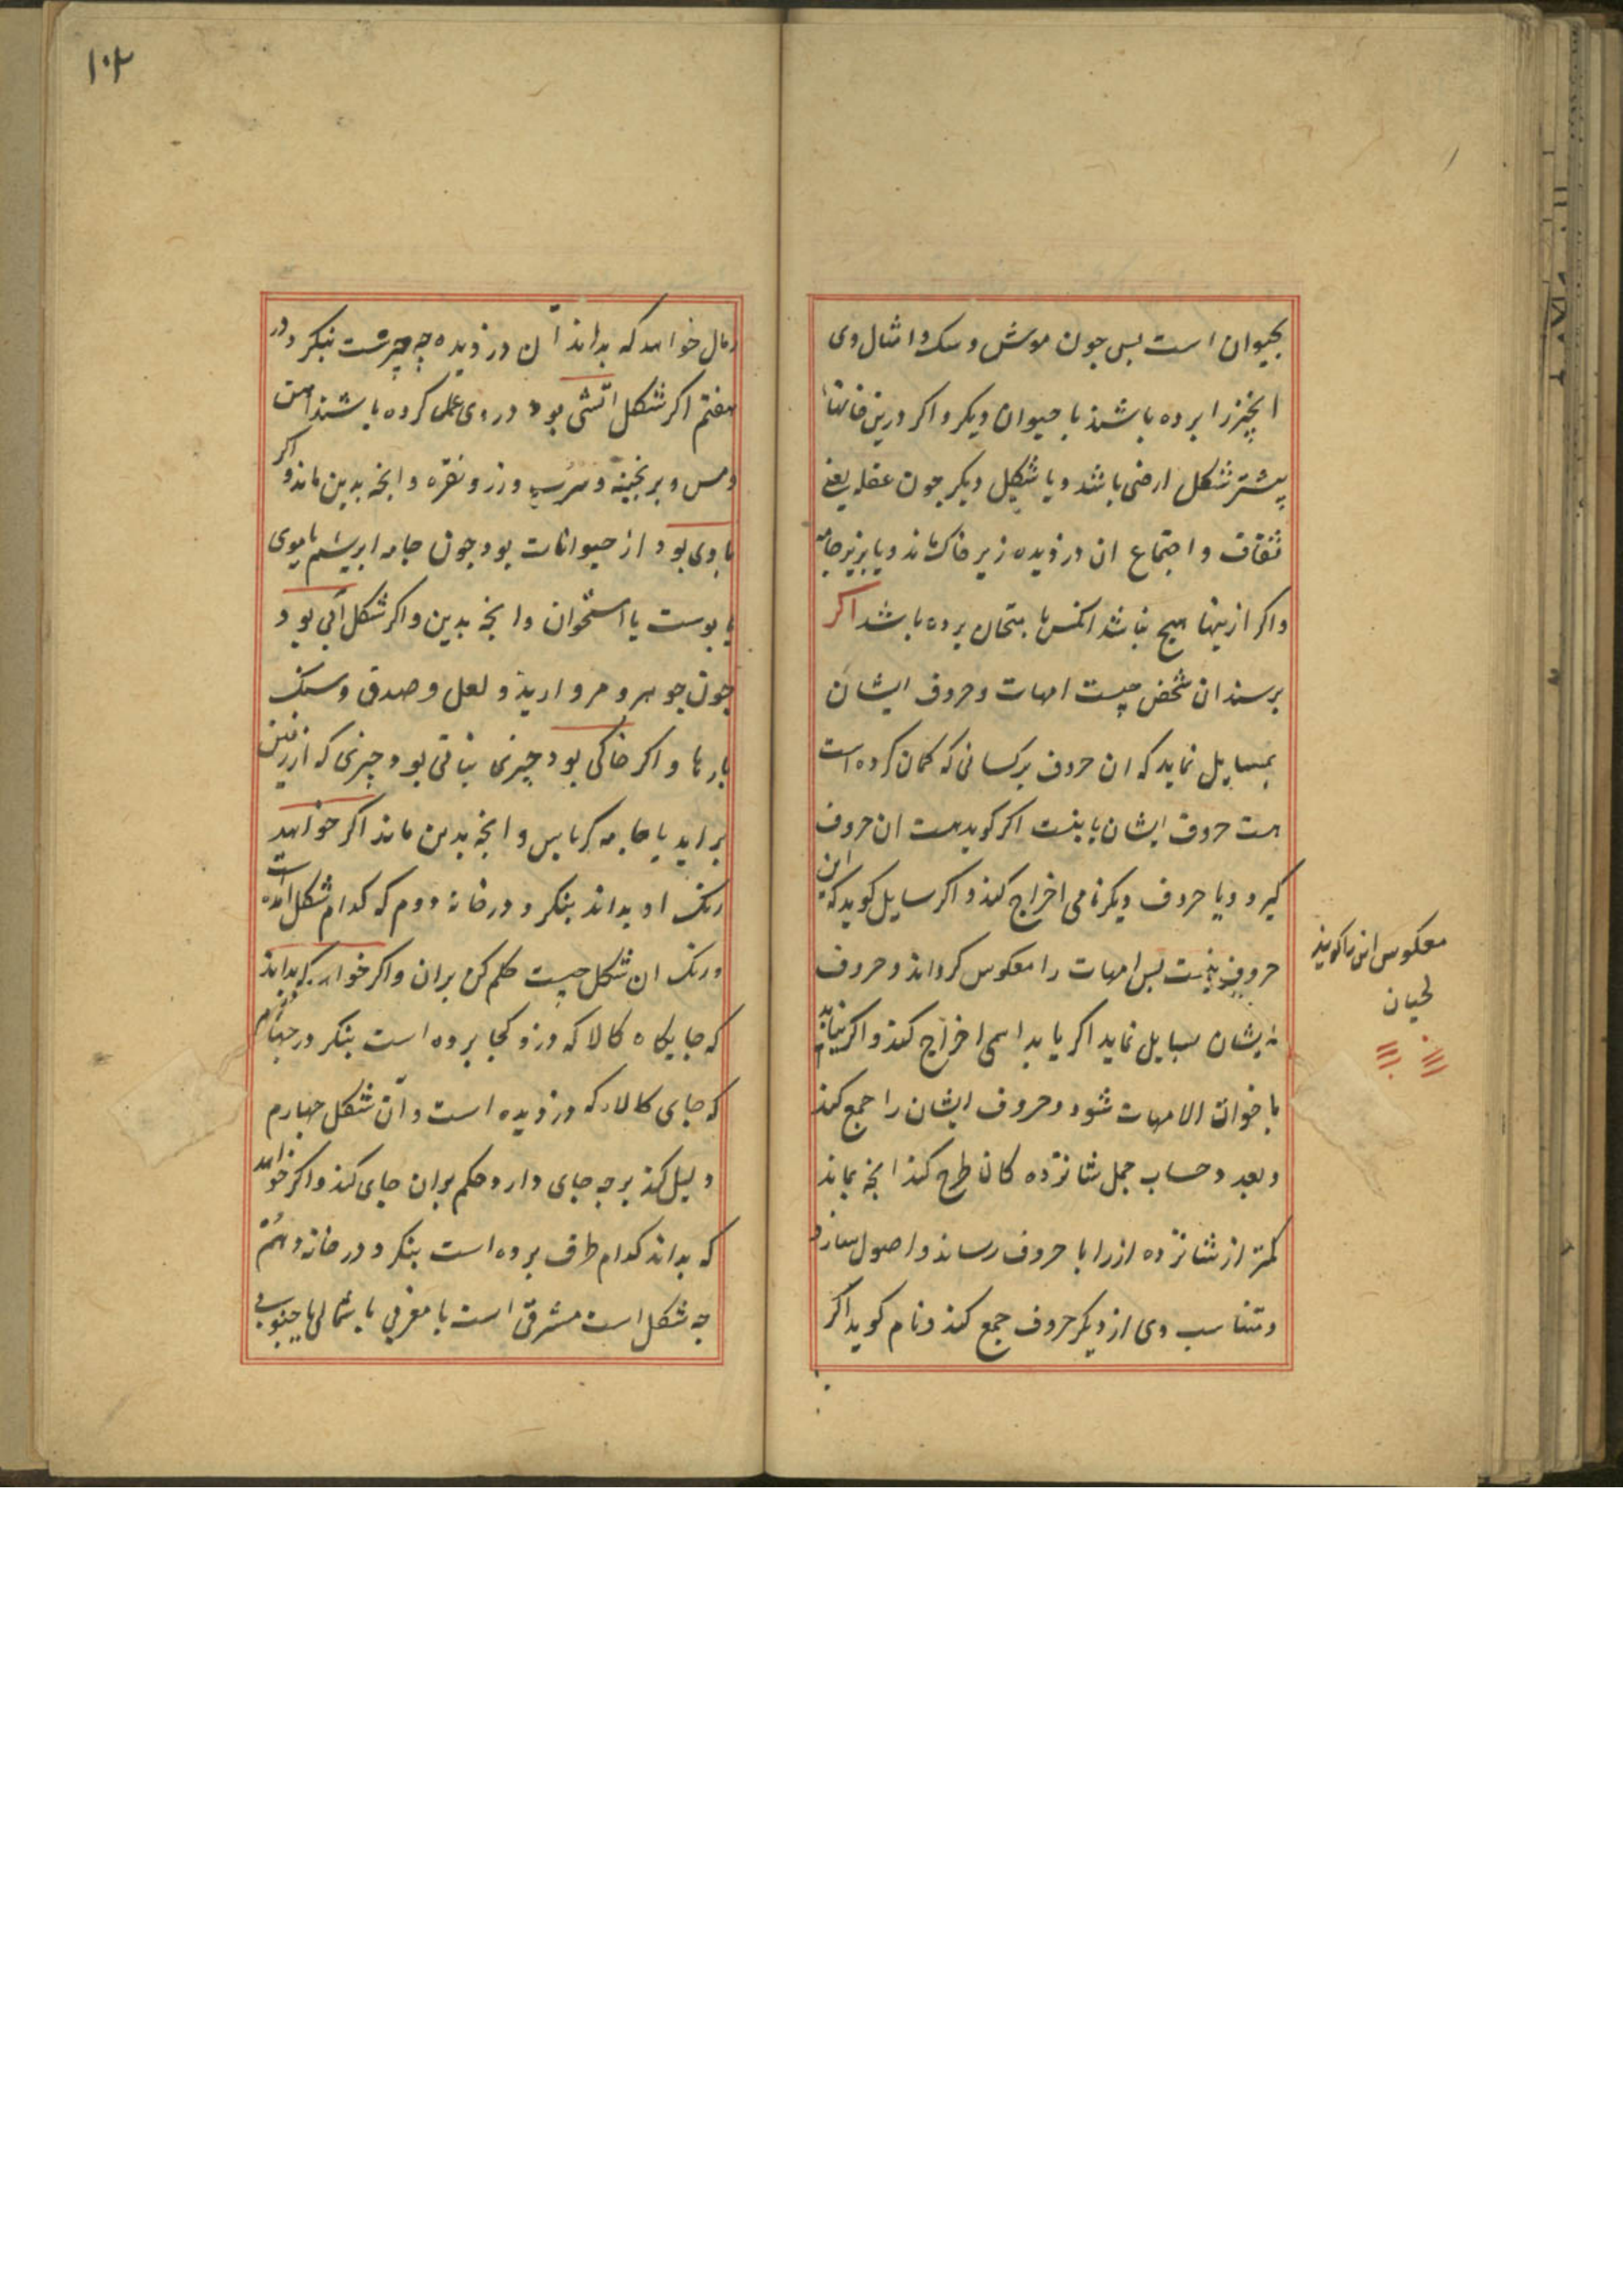 بحیوان است بس جون موش وسک وامثال وی
انجیز را برده باشند یا حیوان دیکر واکر درین خانها
پیشتر شکل ارضی باشد ویا شکل دیکر جون عقله یعنی
ثقاف واجتماع ان دزدیده زیر خاک ماند ویا بزیر جامه
واکر ازینها هیج نباشد انکس بامتحان برده باشد اکر
برسند ان شخص چیست امهات وحروف ایشان
بسایل نماید که ان حروف برکسانی که کمان کرده است
هست حروف ایشان یا نیست اکر کوید هست ان حروف
کیرد ویا حروف دیکر نامی اخراج کند واکر سایل کوید که این
حروف نیست بس امهات را معکوس کرداند وحروف
ایشان بسایل نماید اکر یابد اسمی اخراج کند واکر نیابد
باخوات الامهات شود وحروف ایشان را جمع کند
وبعد وحساب جمل شانزده کان طرح کند انجه بماند
کمتر از شانزده ازرا با حروف رساند واصول سازد
ومتناسب وی از دیکر حروف جمع کند ونام کوید اکر
معکوس این را کویند
لحیان
۱۰۲
رمال خواهد که بداند آن دزدیده چه چیزست بنکرد در
هفتم اکر شکل اتشی بود در وی عمل کرده باشند اهن
ومس وبرنجینه وسرب وزر ونقره وانجه بدین ماند واکر
بادی بود از حیوانات بود جون جامه ابریشم یا موی
یا بوست یا استخوان وانجه بدین واکر شکل آبی بود
جون جوهر ومروارید ولعل وصدف وسنک
بارها واکر خاکی بود چیزی نباتی بود چیزی که از زمین
براید یا جامه کرباس وانجه بدین ماند اکر خواهد
رنک او بداند بنکرد در خانه دوم که کدام شکل آمده است
ورنک ان شکل چیست حکم کن بران واکر خواهد که بداند
که جایکاه کالا که دزد کجا برده است بنکر در جهارم
که جای کالا که دزدیده است وآن شکل جهارم
دلیل کند برجه جای دارد حکم بران جای کند واکر خواهد
که بداند کدام طرف برده است بنکرد در خانه دهم
جه شکل است مشرقی است یا مغربی یا شمالی یا جنوبی